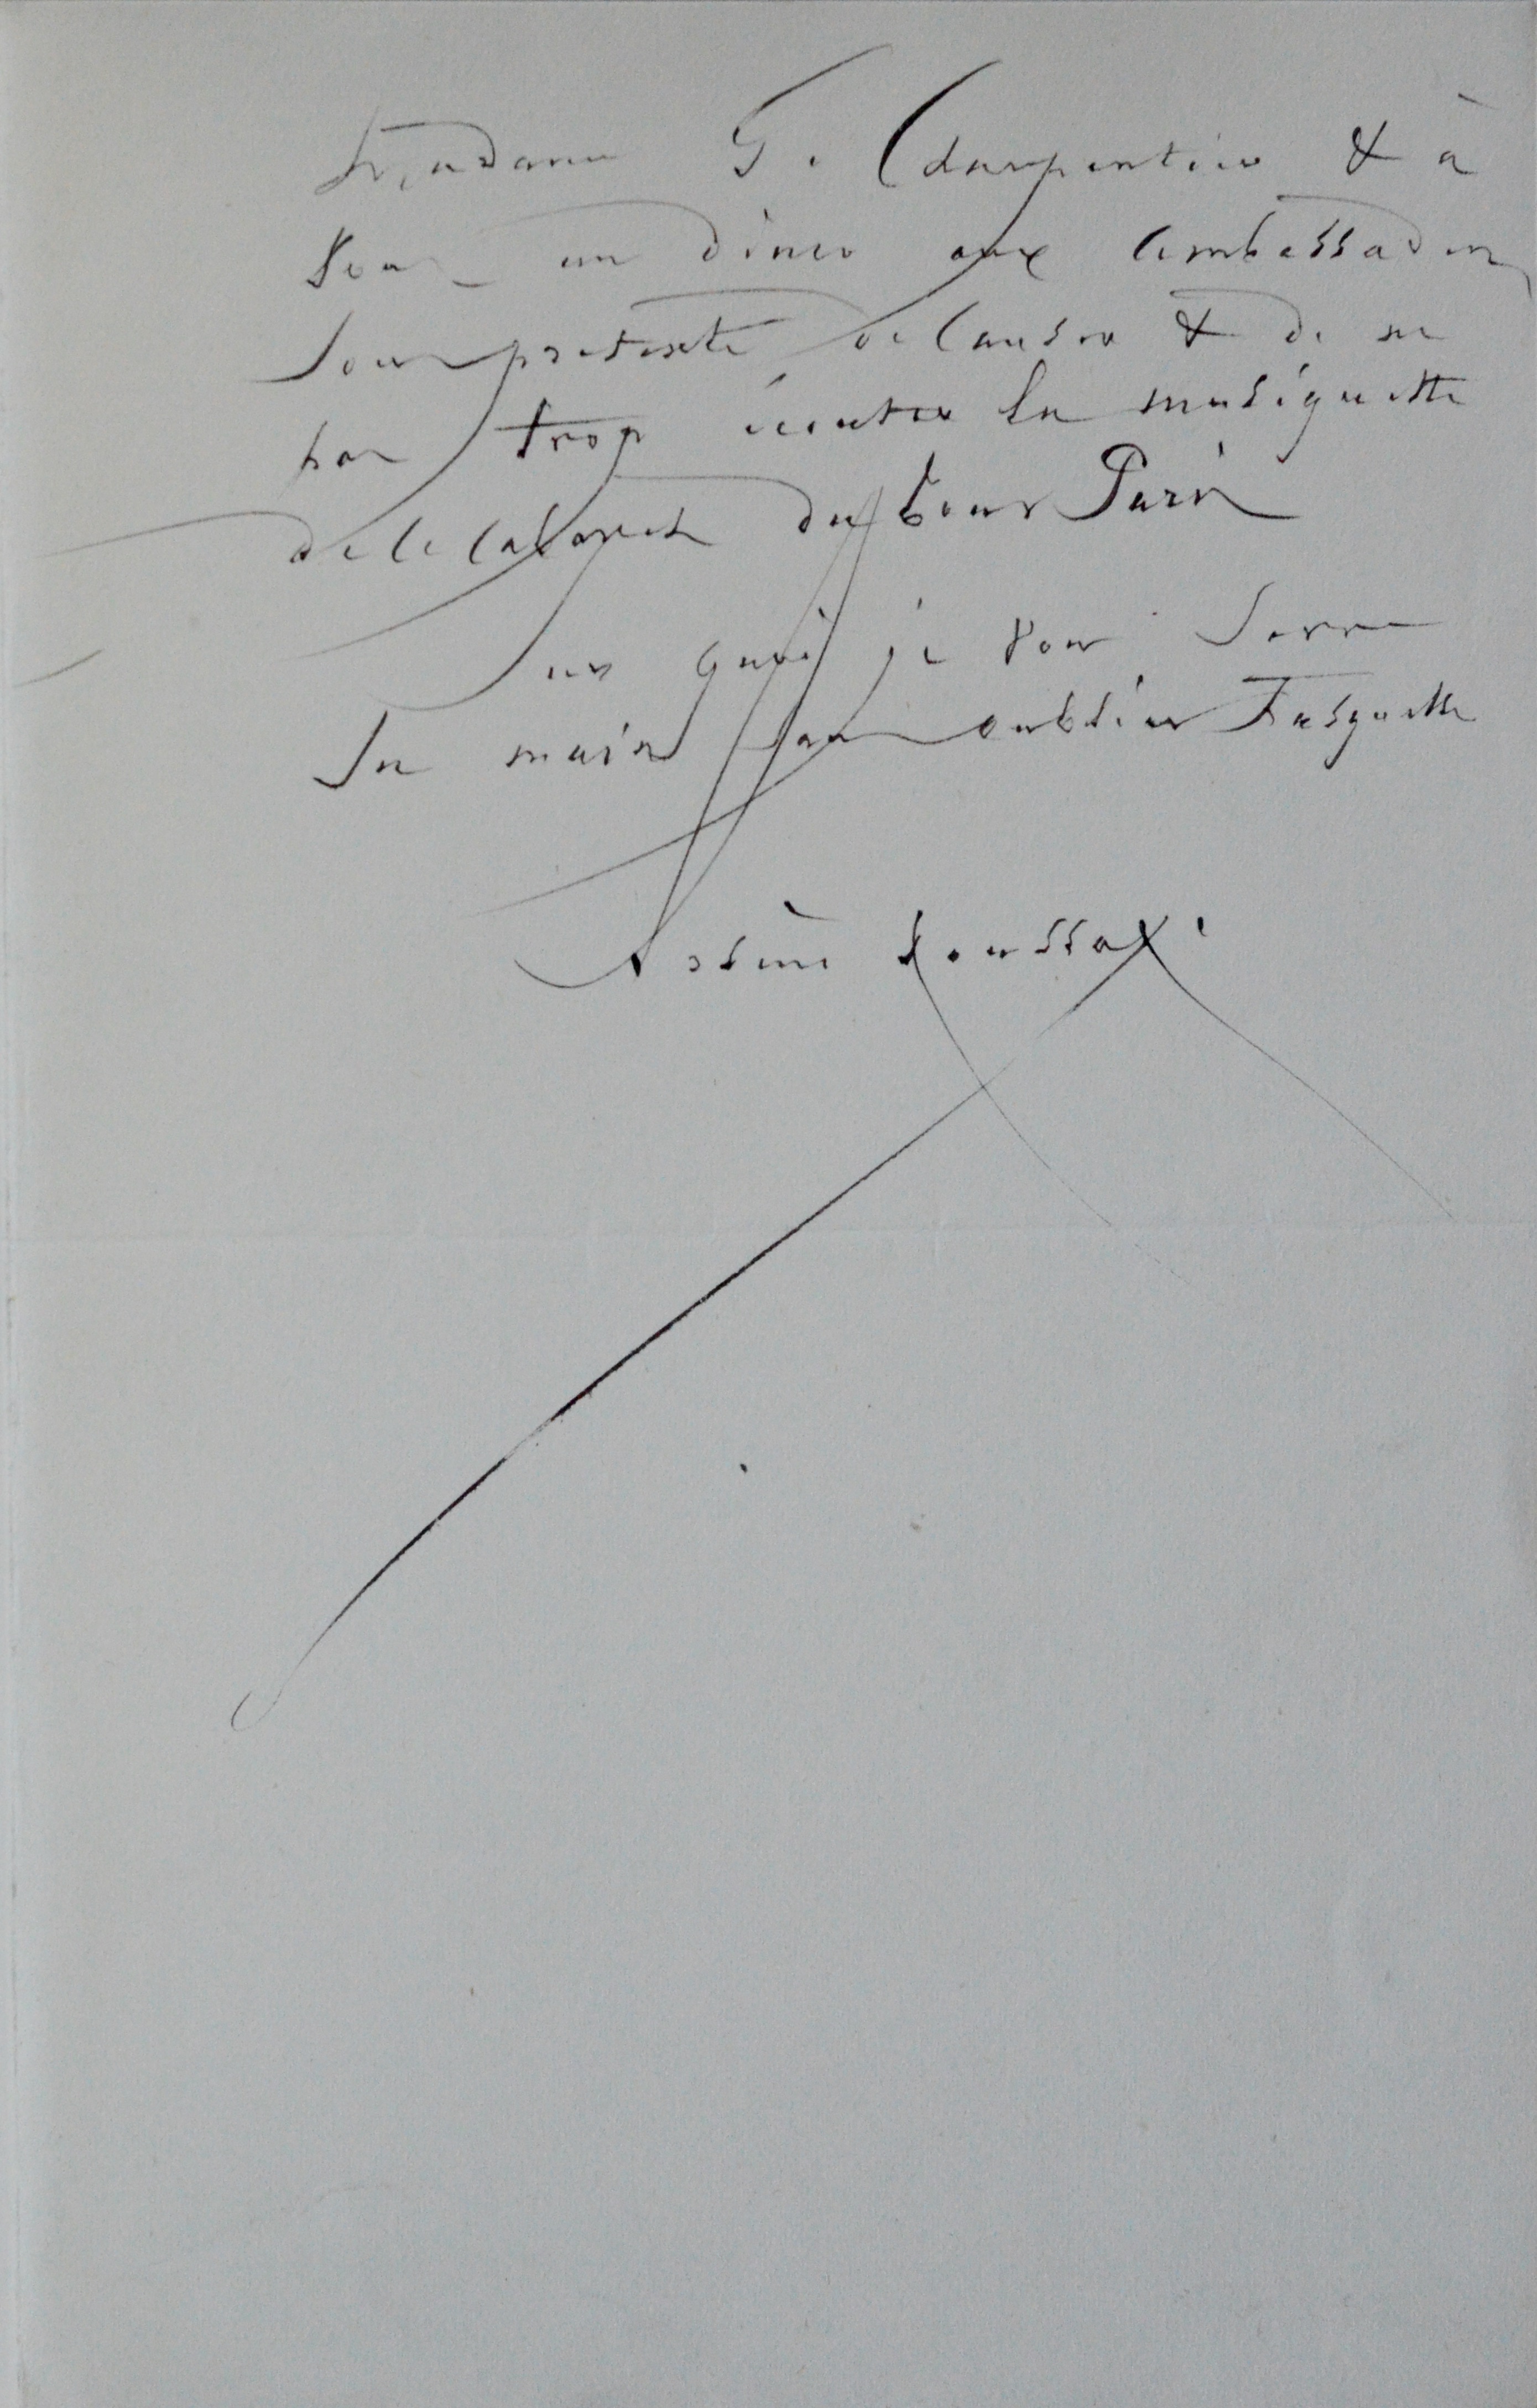 Madame G. Charpentier & à
vous un diner aux ambassadeurs
sous prétexte de causer & de ne
pas trop écouter la musiquette
de le cabaret du beau Paris
Sur quoi je vous serre
la main sans oublier Fasquelle
Arsène Houssaye